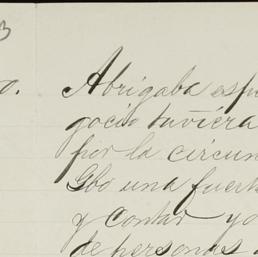 3
o. Abrigaba esp
gocio tuviera
por la circun
Gbo una fuert
y contar yo
de personas